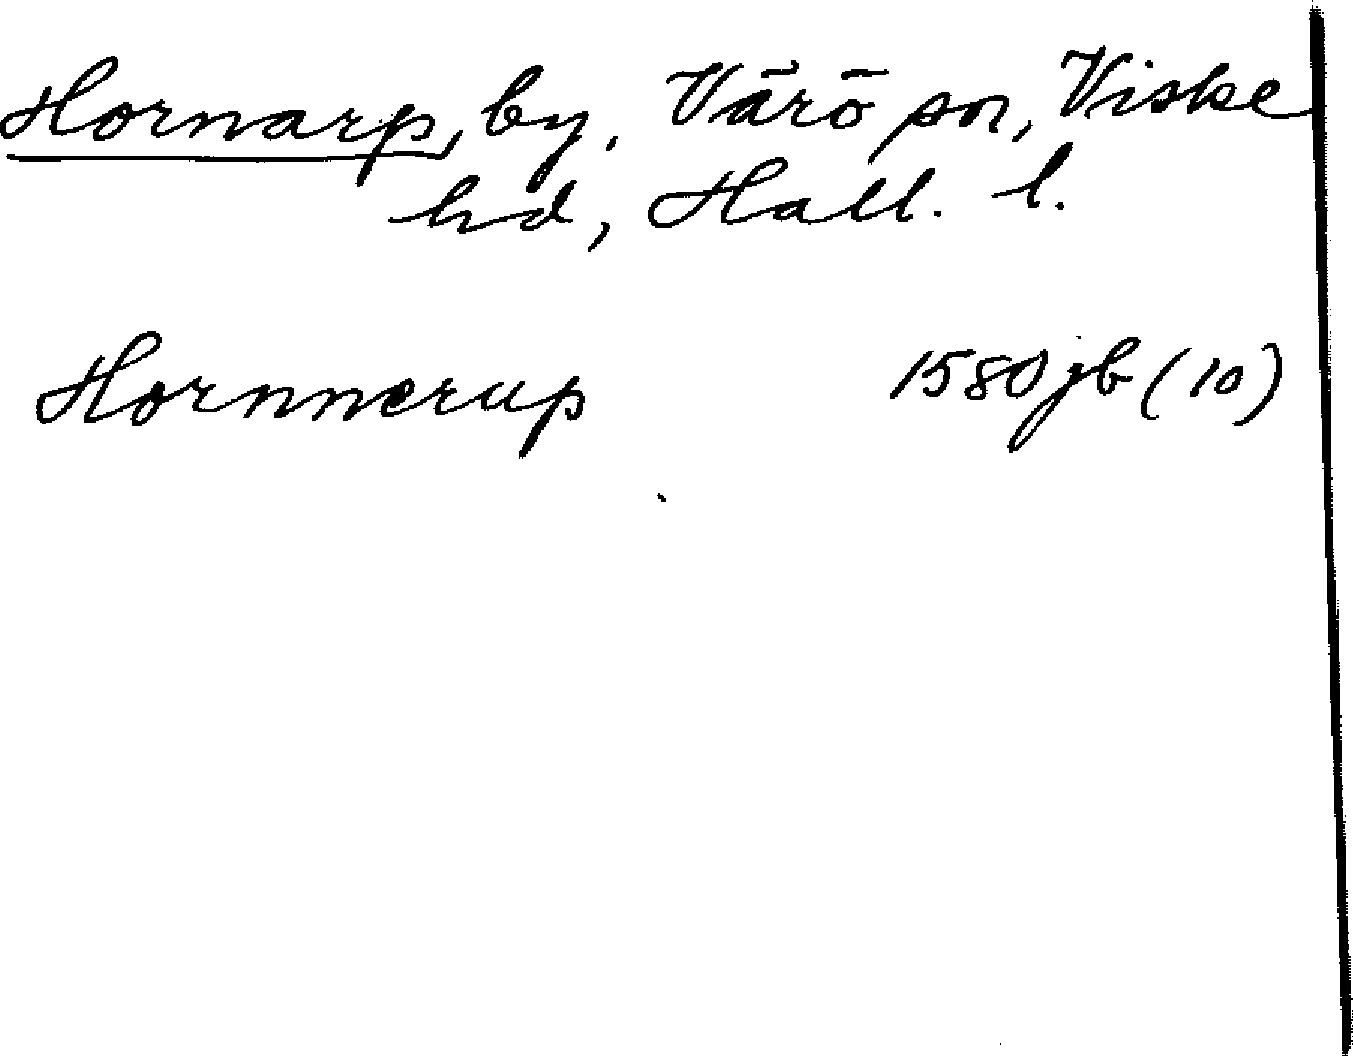 Hornarp, by, Värö sn, Viske
hd, Hall. l.
Hornnerup 1580 jb (10)